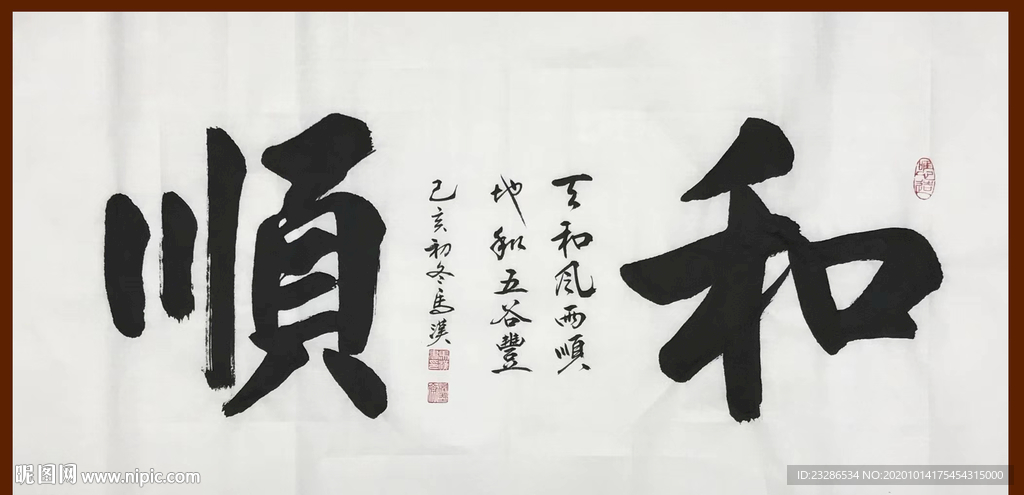 和
天和风雨順
地和五谷豐
己亥初冬馬漢
順
昵图网 www.nipic.com
ID:23286534 NO:20201014175454315000